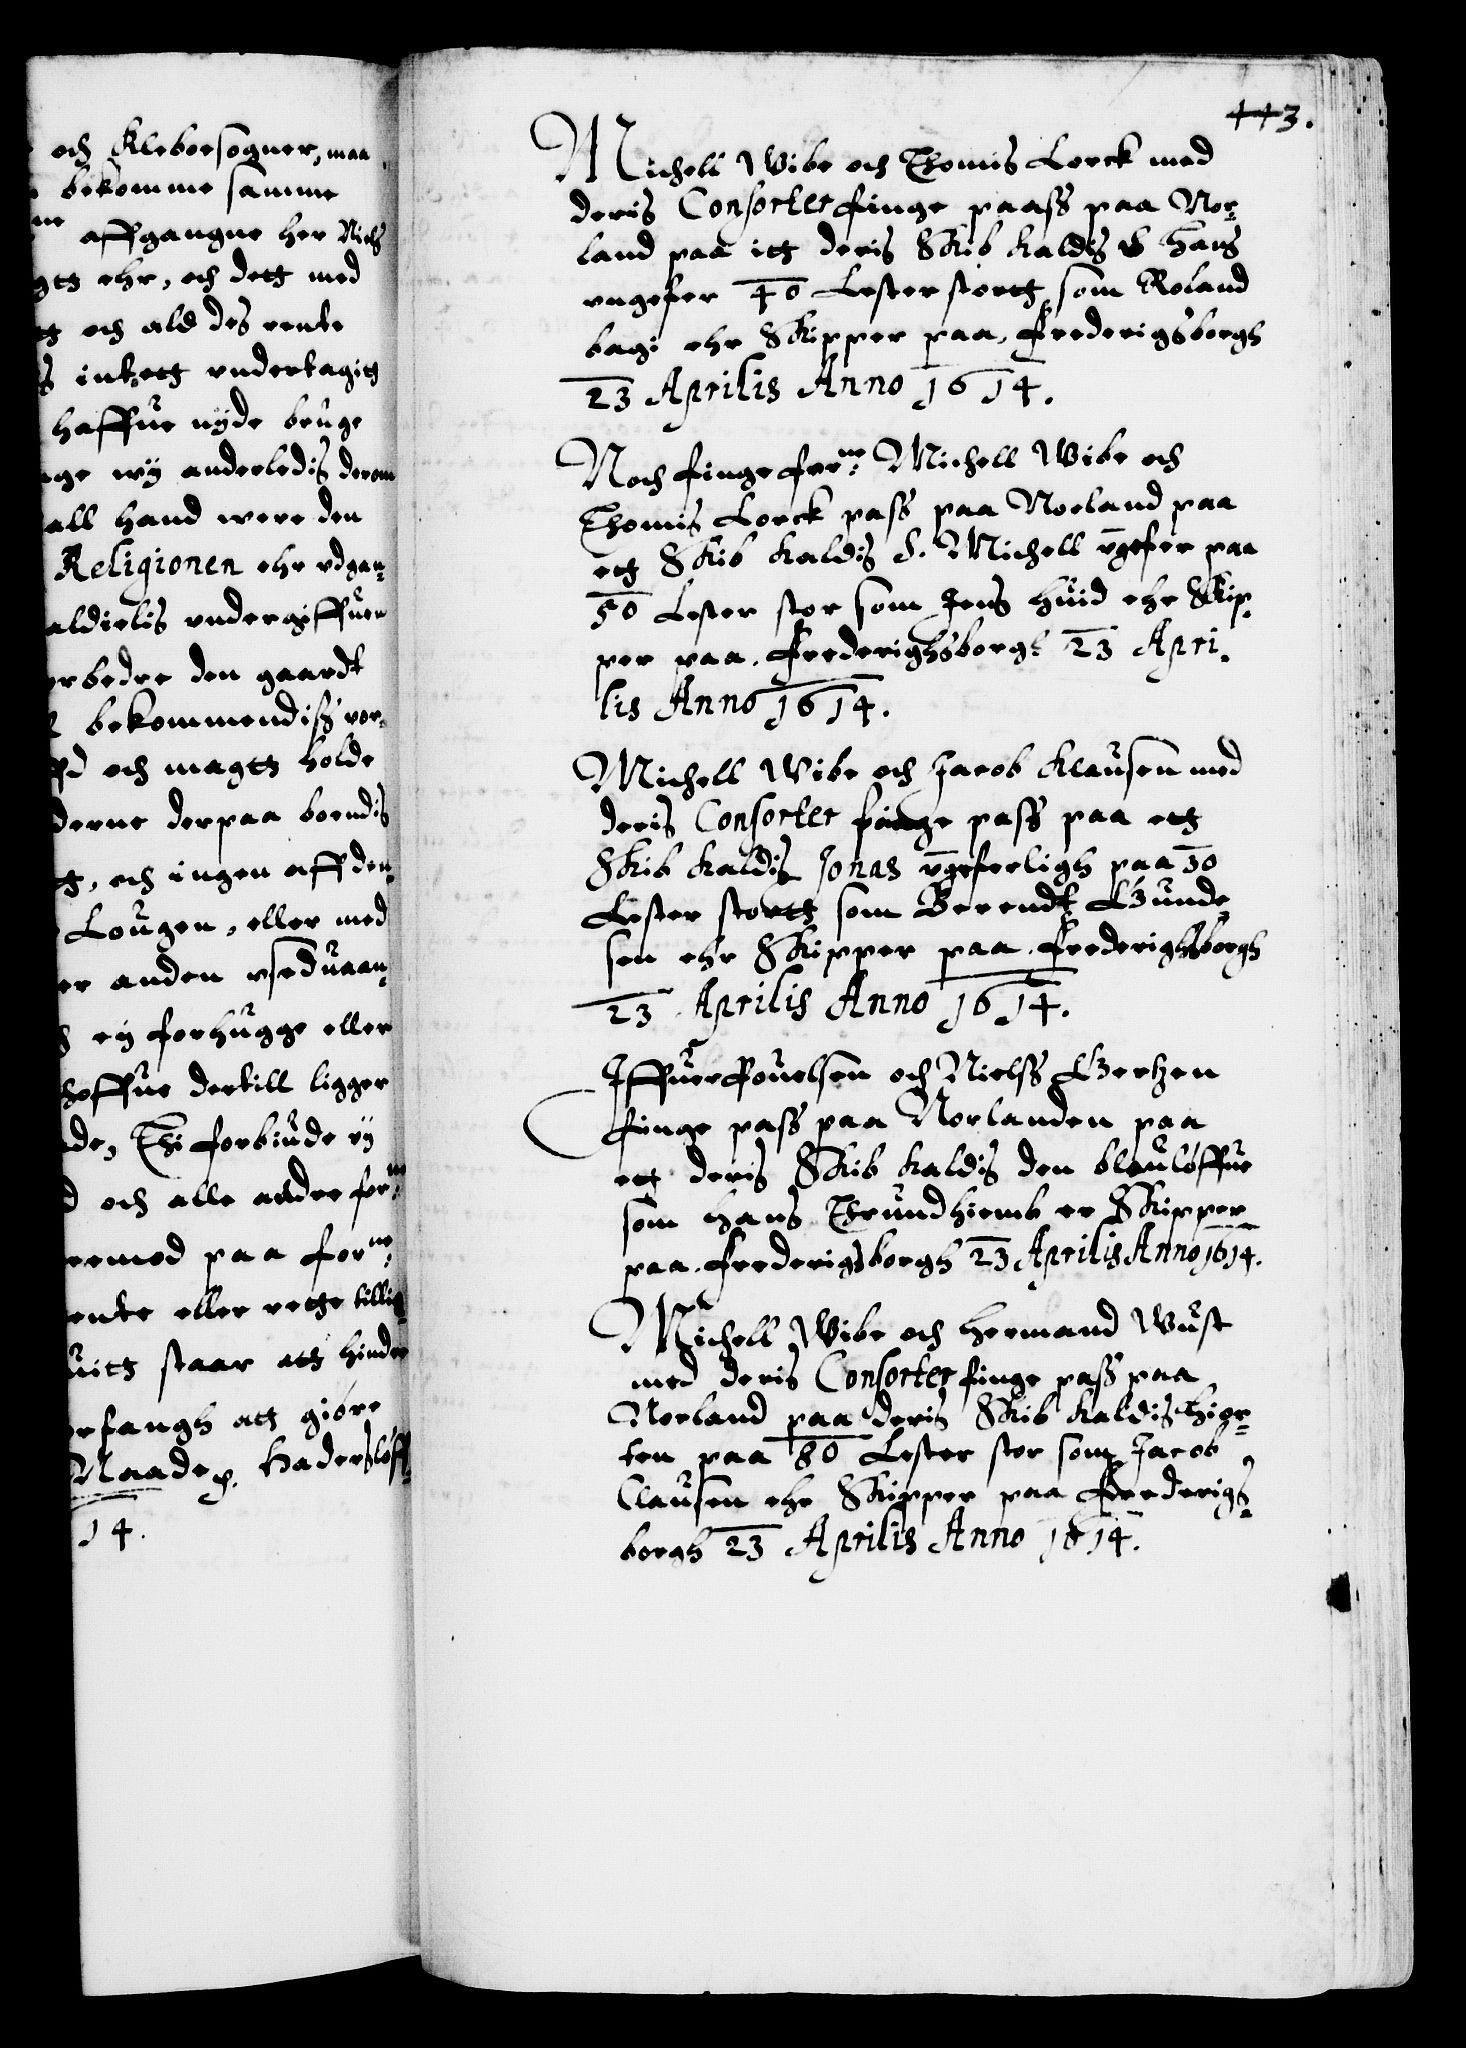 och Kleboesogner, maa
bekomme samme
affgangne her Niels
ehr, och dett med
och ald des rente
intett undertagitt
haffue nyde bruge
wy anderledis derom
hand were den
Religionen ehr udgan¬
aldielis undergiffuen
bedre den gaardt
bekommendiss vor¬
och magtt holde
derne derpaa boendis
och ingen aff den¬
Lougen, eller med
anden usedvaan¬
ey forhugge eller
dertill ligger
Thi forbiude vy
och alle andre for:ne
paa for:ne
rente eller rette tillig¬
staar att hinder
forfangh att giöre
Naade p. Haderslöff
14.
113.
Michell Wibe och Thomis Lorck med
deris Consorter finge paass paa Nor¬
land paa itt deris Skib kaldis S Hans
ungefer 40 Lester stortt som Roland
bagi ehr Skipper paa Frederigsborgh
23 Aprilis Anno 1614.
Noch finge for:ne Michell Wibe och
Thomis Lorck pass paa Norland paa
ett Skib kaldis S. Michell ungefer paa
50 Lester stor som Jens Huid ehr Skip¬
per paa Frederighsborgh 23 Apri¬
lis Anno 1614.
Michell Wibe och Jacob Klausen med
deris Consorter finge pass paa ett
Skib kaldis Jonas ungeferligh paa 30
Lester stortt som Berendt Gunde¬
sen ehr Skipper paa Frederighsborgh
23 Aprilis Anno 1614.
Iffuer Pouelsen och Nielss Gertzen
finge pass paa Norlanden paa
ett deris Skib kaldis den blaulöffue
som Hans Thrundhiemb er Skipper
paa Frederigsborgh 23 Aprilis Anno 1614.
Michell Wibe och Hermand Wust
med deris Consorter finge pass paa
Norland paa deris Skib kaldis Hior¬
ten paa 80 Lester stor som Jacob
Clausen ehr Skipper paa Frederigs¬
borgh 23 Aprilis Anno 1614.